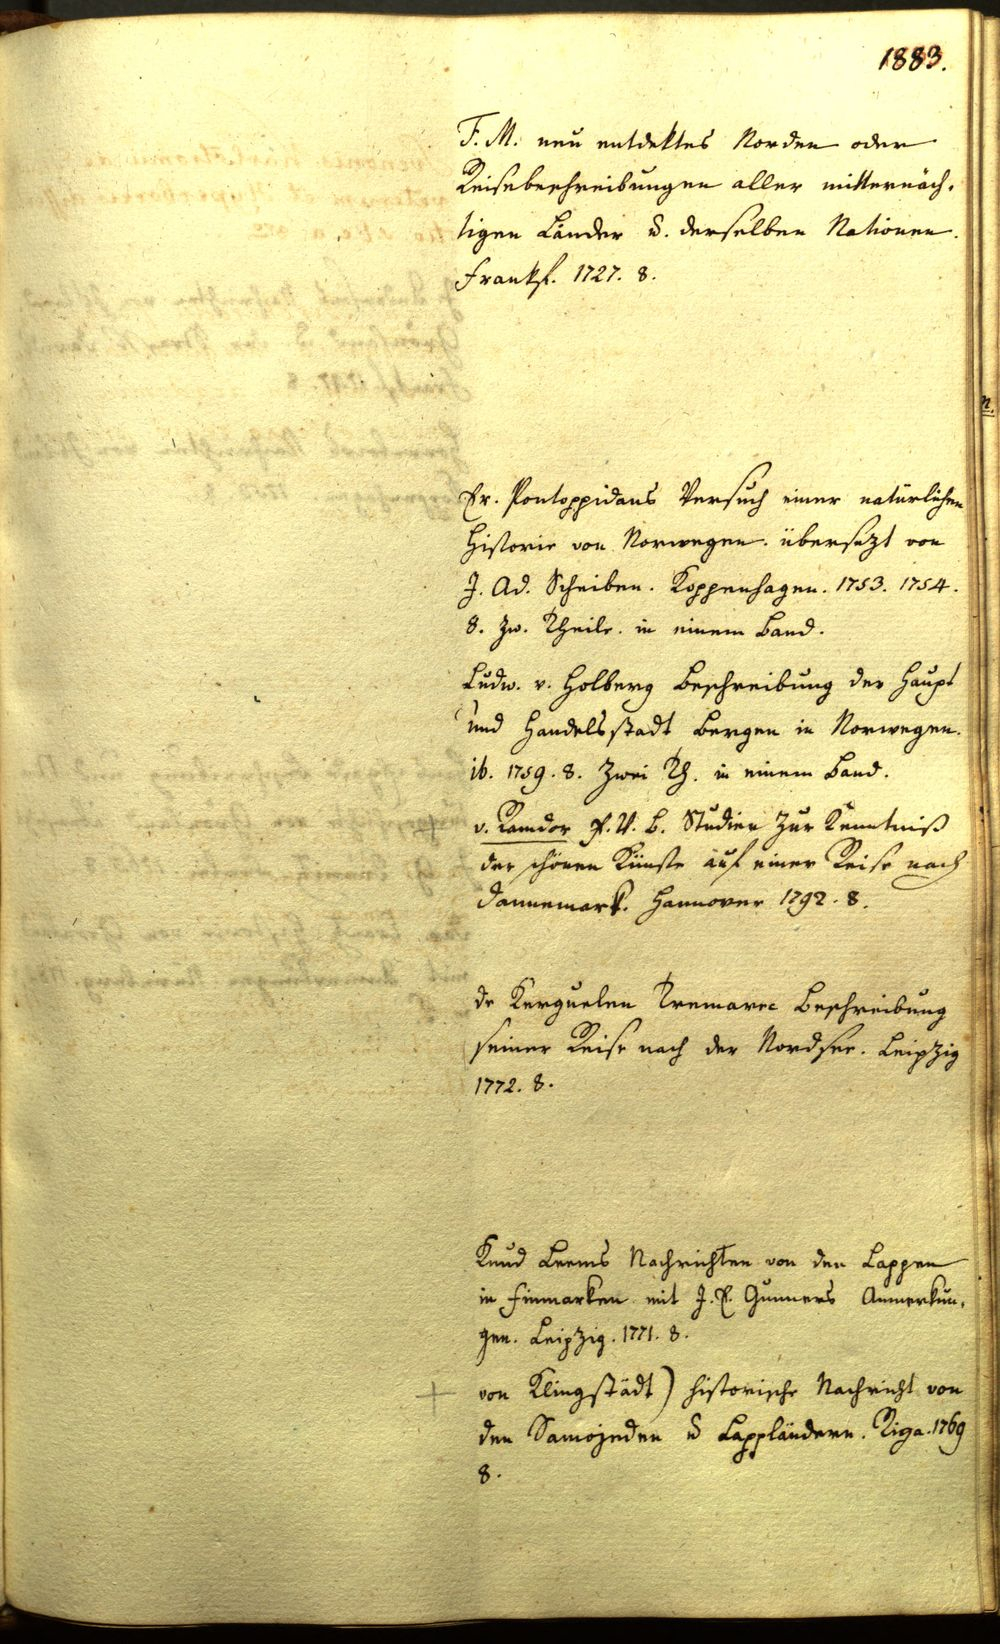 1883.
F. M. neu entdektes Norden oder
Reisebeschreibungen aller mitternäch-
tigen Länder u. derselben Nationen.
Frankf. 1727. 8.
Er. Pontoppidans Versuch einer natürlichen
Historie von Norwegen. übersezt von
J. Ad. Scheiben. Koppenhagen. 1753. 1754.
8. Zw. Theile. in einem Band.
Ludw. v. Holberg Beschreibung der Haupt
und Handelsstadt Bergen in Norwegen.
ib. 1759. 8. Zwei Th. in einem Band.
+ v. Ramdor F. W. B. Studien zur Kenntniß
der schönen Künste auf einer Reise nach
Dannemark. Hannover 1792. 8.
de Kerguelen Tremarec Beschreibung
seiner Reise nach der Nordsee. Leipzig
1772. 8.
Knud Leems Nachrichten von den Lappen
in Finmarken mit J. E. Gunners Anmerkun-
gen. Leipzig. 1771. 8.
+ von Klingstädt) historische Nachricht von
den Samojeden u Lappländern. Riga. 1769
8.